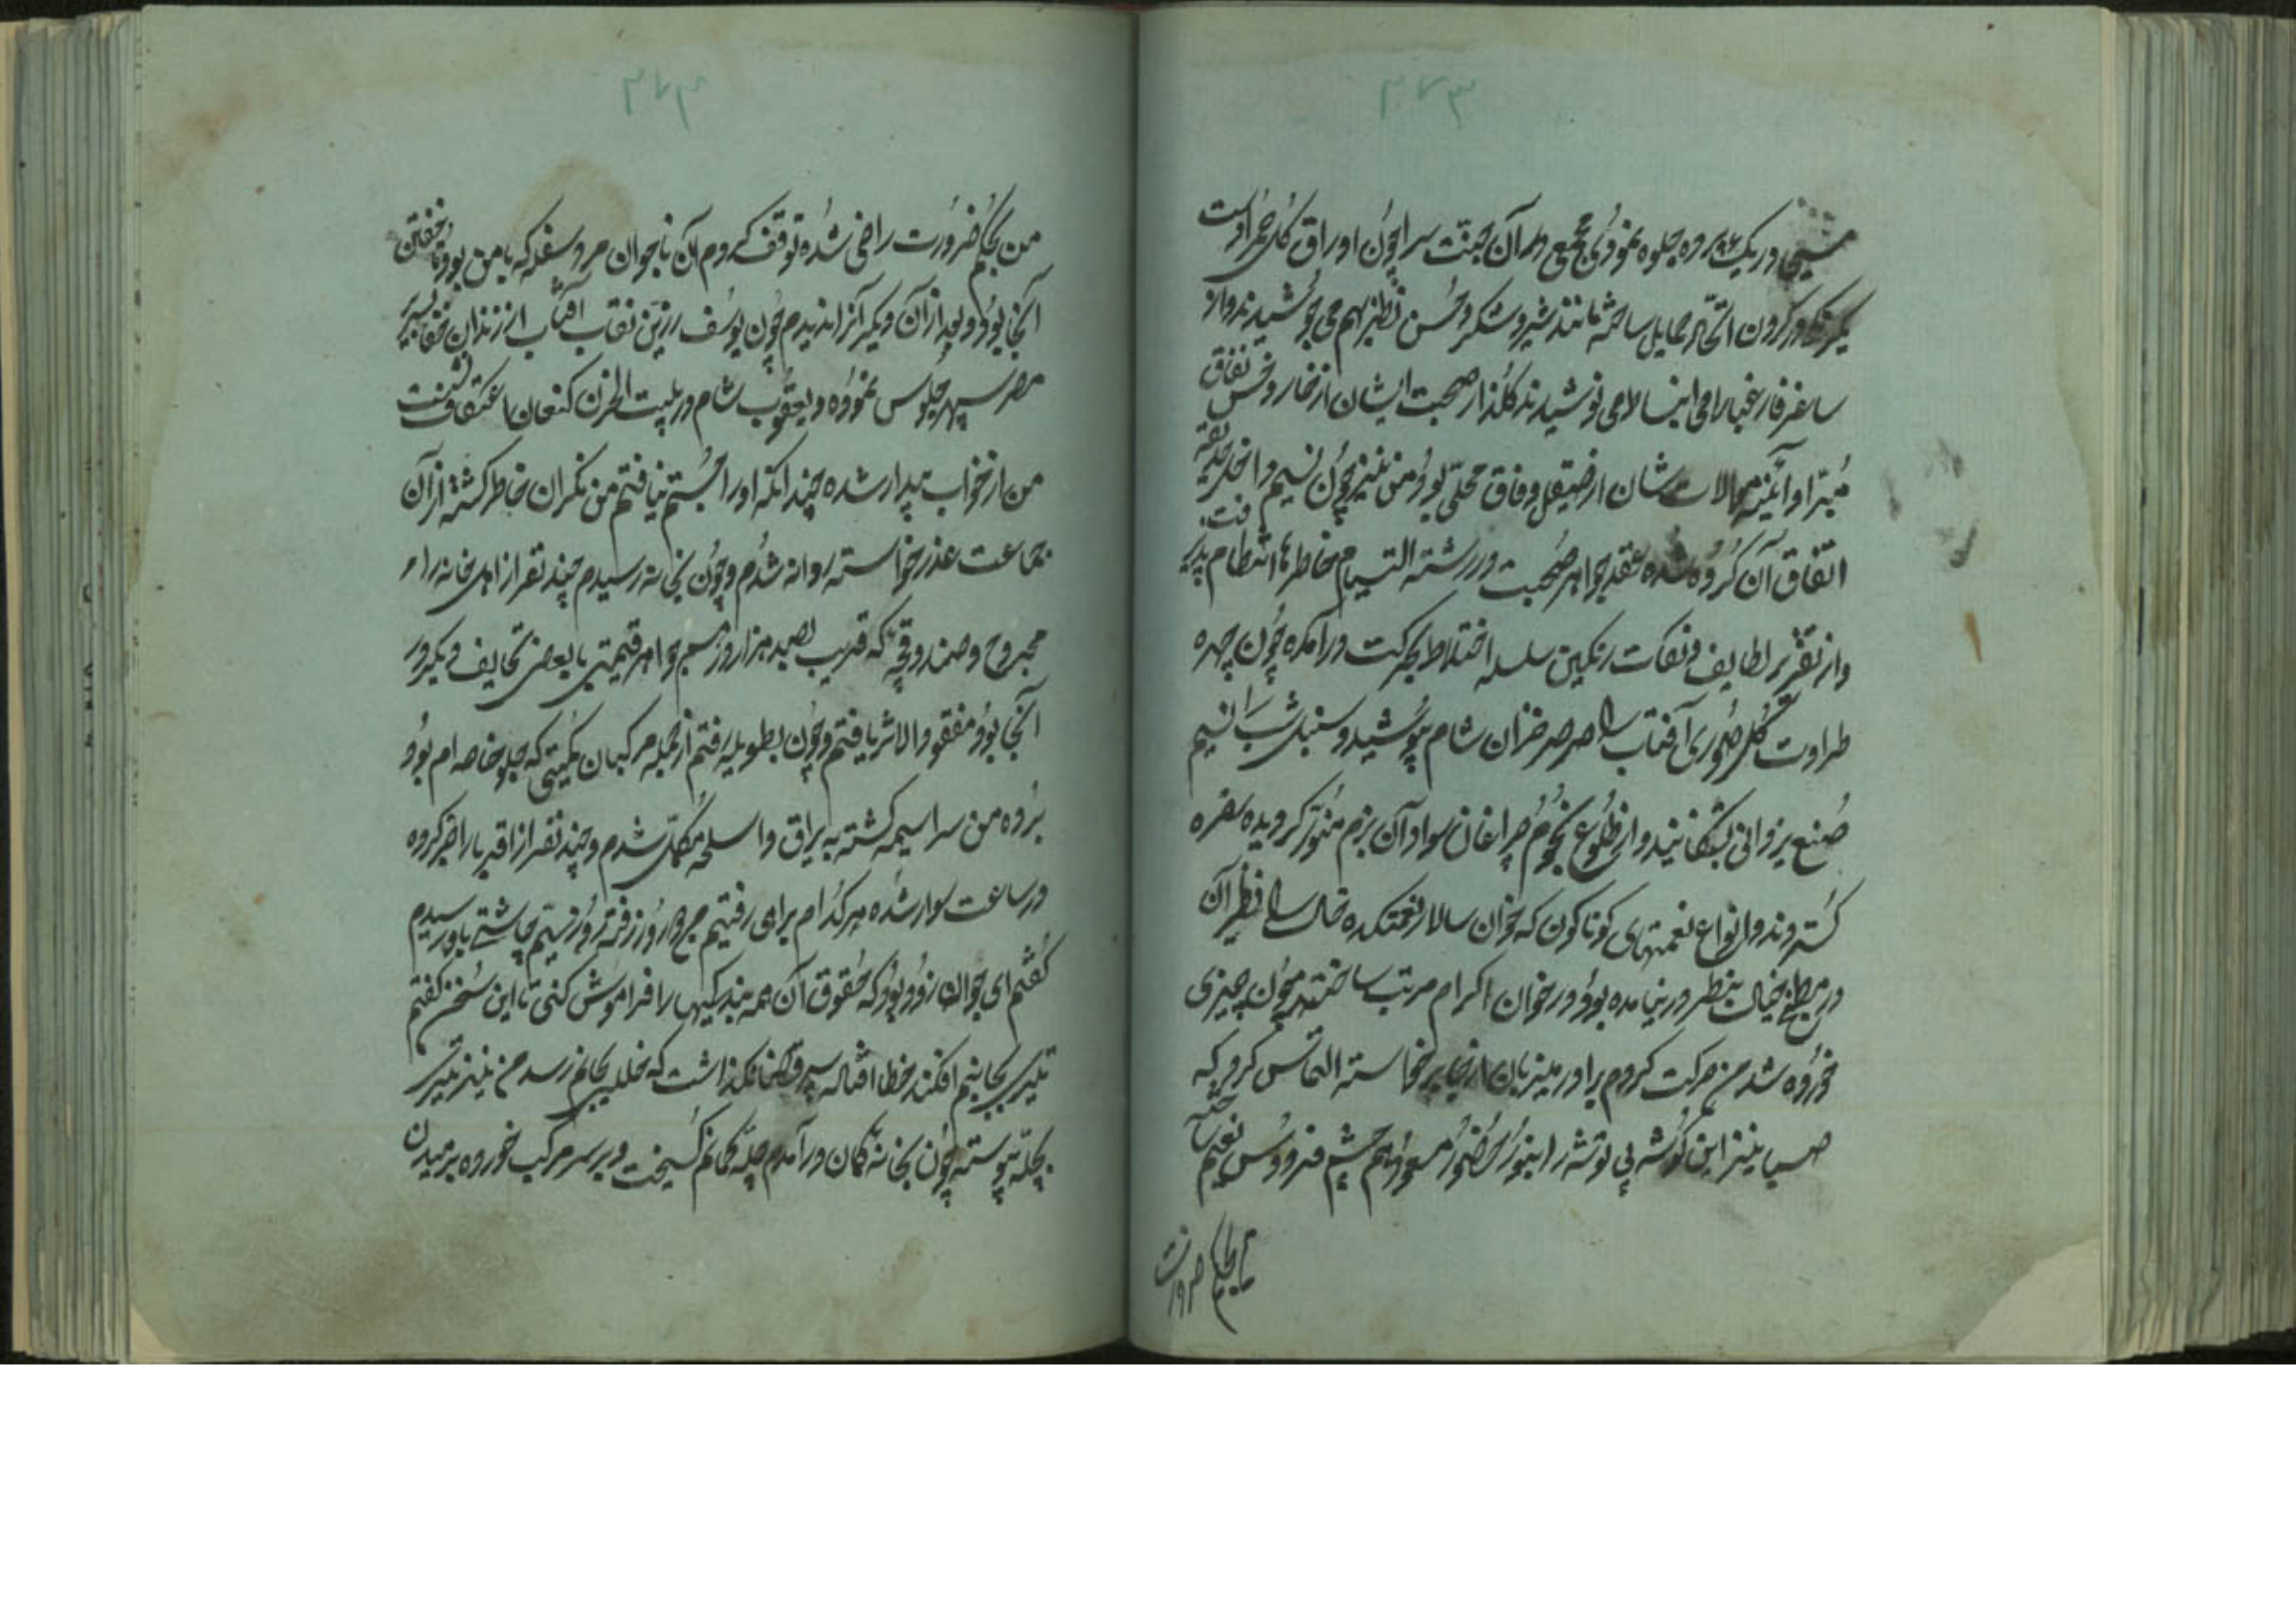 ۲۷۳
مسیحا در یک پرده جلوه نمودی مجمع در آن جنّت سرا چون اوراق گل حمرا دست
در گردن اتحاد حمایل ساخته مانند شیر و شکر و حسن نظر بهم می جوشیدند و از
ساغر فارغبالی می انبساط می نوشیدند گلزار صحبت ایشان از خار و خس نفاق
مبرّا و آئینه حالات شان از صیقل وفاق محلّی بود من نیز چون نسیم داخل حدیقه
اتفاق آن گروه شده عقد جواهر صحبت در رشته التیام خاطرها انتظام پذیرفت
و از تقریر لطایف و نکات رنگین سلسله اختلاط بحرکت درآمده چون چهره
طراوت گل صوری آفتاب را صرصر خزان شام پوشید و سنبل شب را نسیم
صنع یزدانی بشکفانید و از طلوع نجوم چراغان سواد آن بزم منور گردیده سفره
گستردند و انواع نعمتهای گوناگون که خوان سالار نعمتکده خیال را نظیر آن
در مطبخ خیال بنظر در نیامده بود در خوان اکرام مرتب ساختند چون چیزی
خورده شد من حرکت کردم برادر میزبان از جا برخاسته التماس کرد که
صبا نیز این گوشه بی توشه را بنور حضور مسعود هم چشم فردوس نعیم
من بحکم ضرورت
۲۷۴
من بحکم ضرورت راضی شده توقف کردم آن ناجوان مرد سفله که با من بود تا خفتن
آنجا بود و بعد از آن دیگر آنرا ندیدم چون یوسف زرین نقاب آفتاب از زندان خفا بسریر
مصر سپهر جلوس نموده و یعقوب شام در بیت الحزن کنعان اعتکاف نشست
من از خواب بیدار شده چندانکه او را جستم نیافتم من نگران خاطر گشته از آن
جماعت عذر خواسته روانه شدم و چون بخانه رسیدم چند نفر از اهل خانه را
مجروح و صندوقچه که قریب بصد هزار روز سیم جواهر قیمتی با بعضی تحایف دیگر در
آنجا بود مفقود الاثر یافتم و چون بطویله رفتم از جمله مرکبان کمیتی که جلو خاصه ام بود
برده من سراسیمه گشته به یراق و اسلحه مکمّل شدم و چند نفر از اقربا را خبر کرده
در ساعت سوار شده هر کدام براهی رفتیم چهار روز رفته روز پنجم چاشتی باو رسیدم
گفتم ای جوان زود بود که حقوق آن همه بندگیها را فراموش کنی تا این سخن گفتم
تیری بجانبم افکند خطا نگذاشت که خللی بجانم رسد من نیز تیری
بچله پیوسته چون بخانه کمان درآمدم چلّه کمانم گسیخت و بر سر مرکب خورده برمیدن